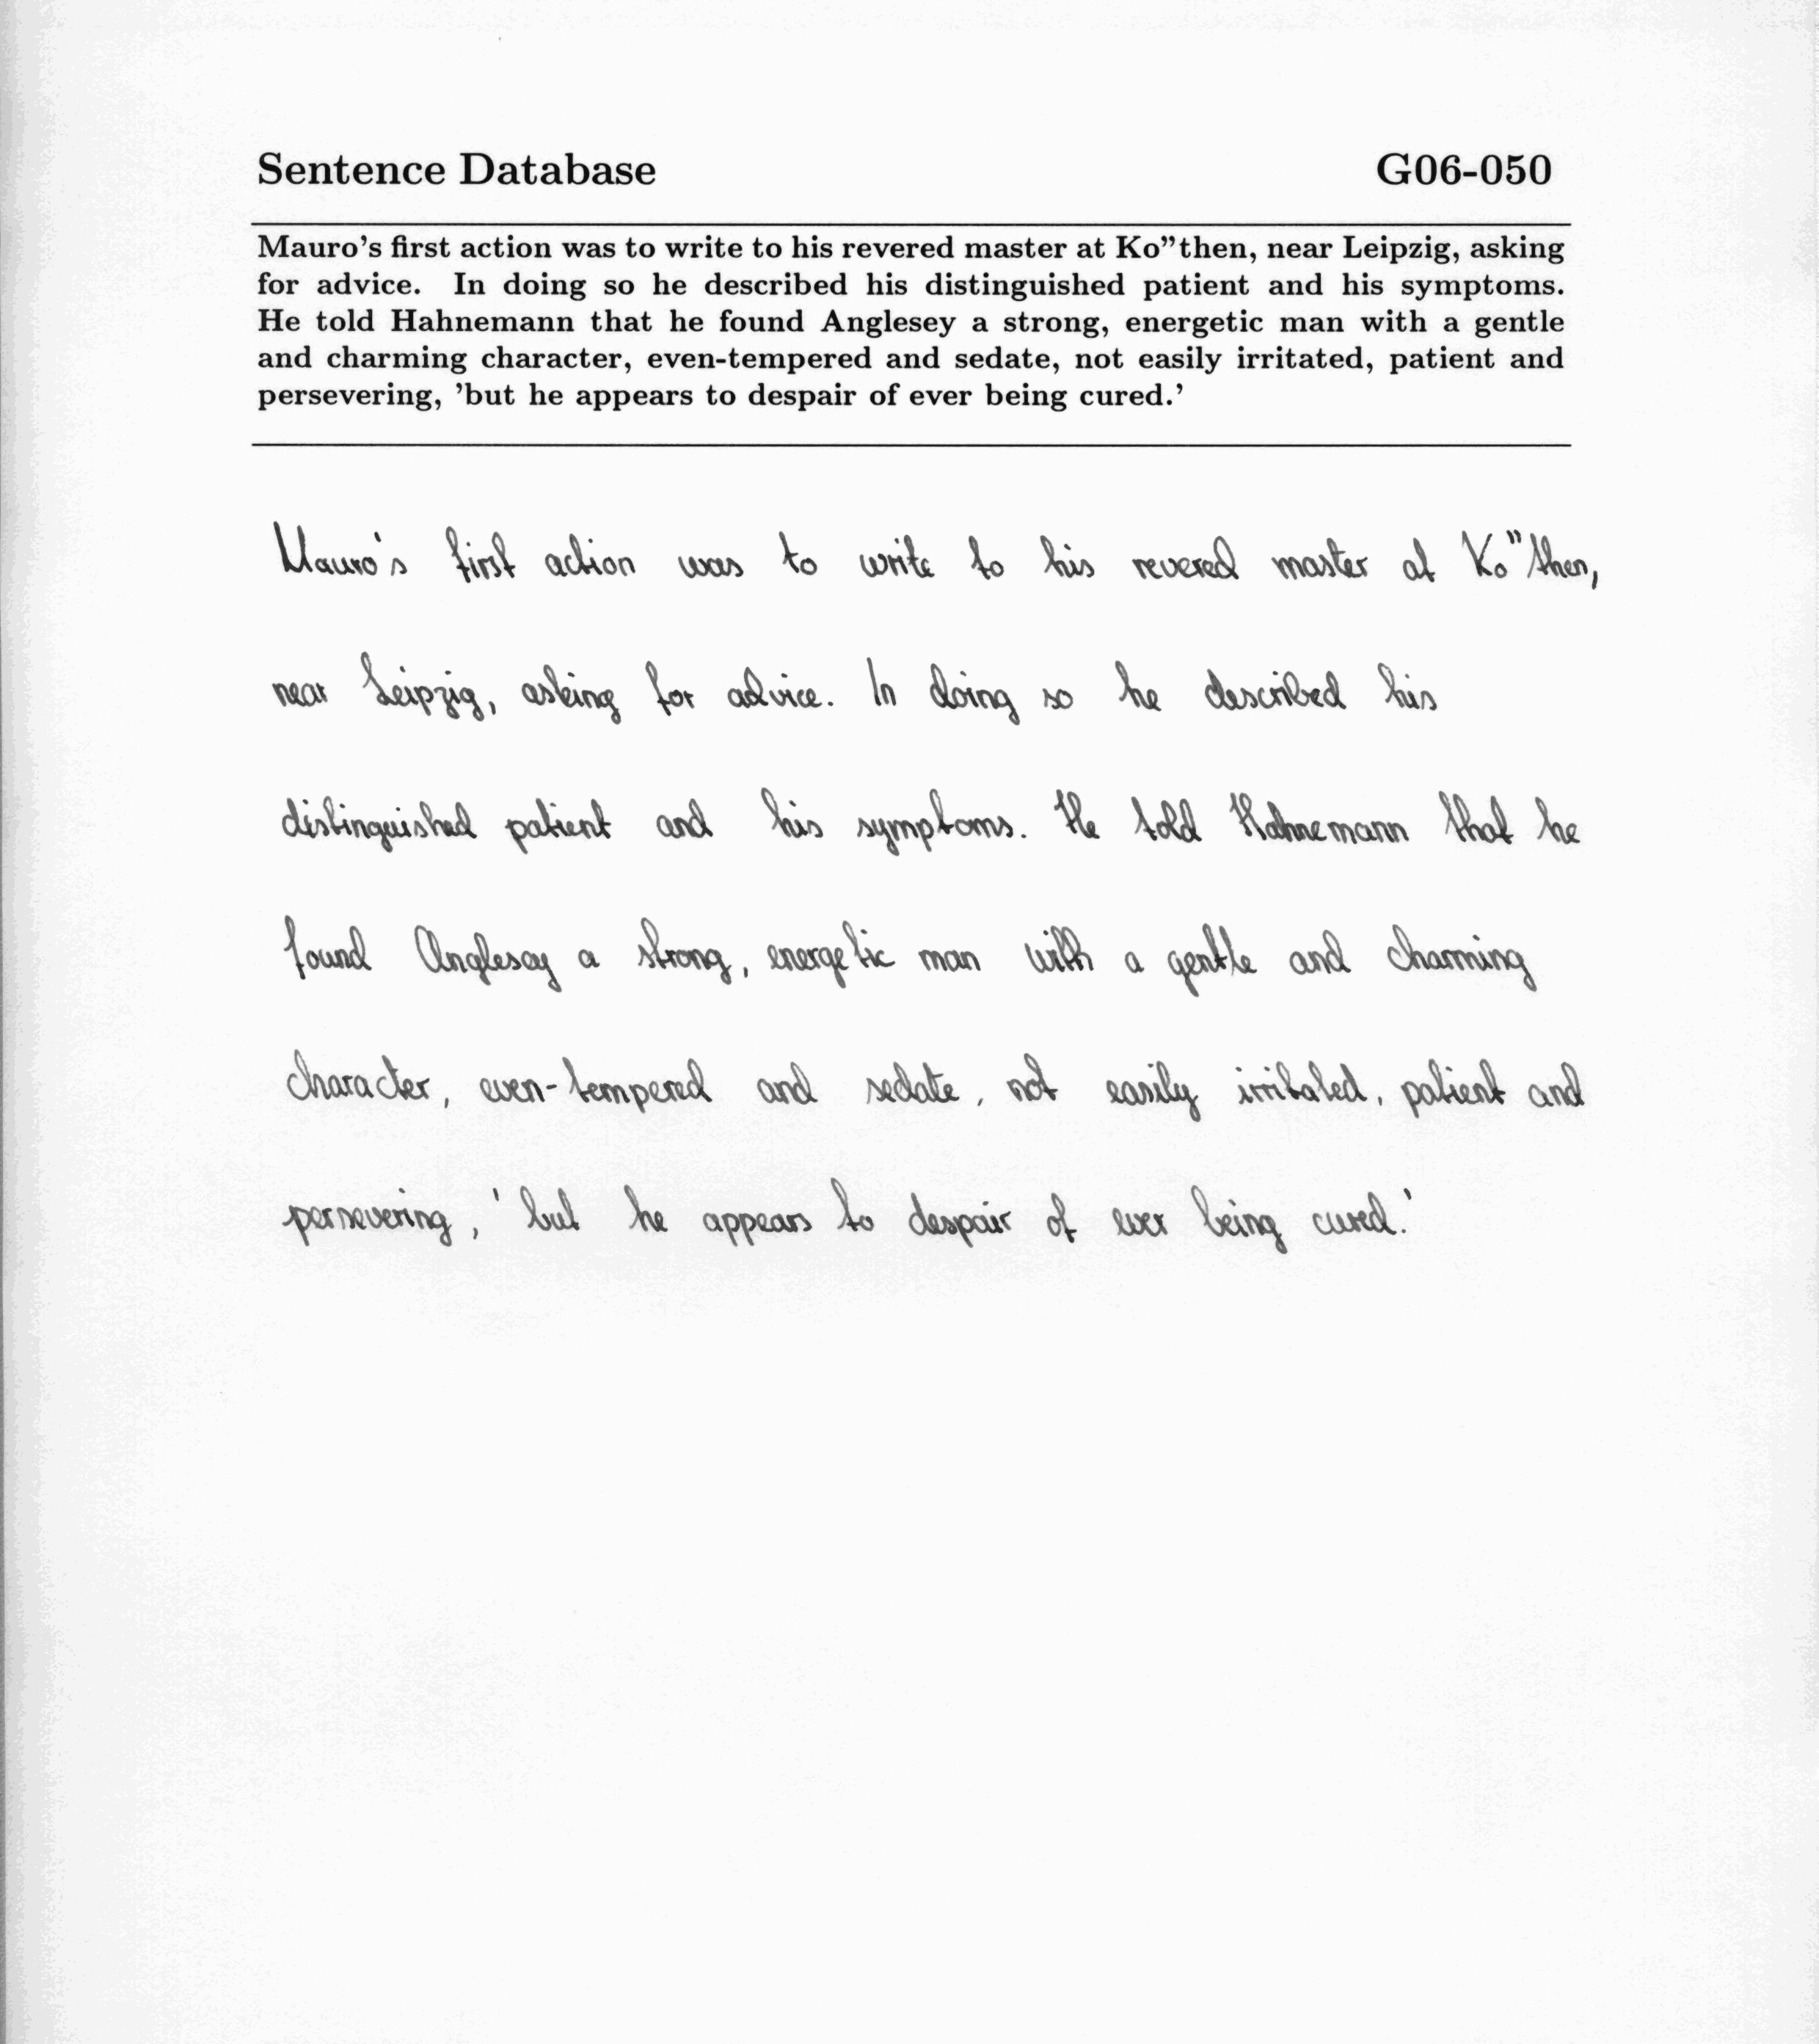 Sentence Database G06-050
Mauro's first action was to write to his revered master at Ko"then, near Leipzig, asking
for advice. In doing so he described his distinguished patient and his symptoms.
He told Hahnemann that he found Anglesey a strong, energetic man with a gentle
and charming character, even-tempered and sedate, not easily irritated, patient and
persevering, 'but he appears to despair of ever being cured.'
Mauro's first action was to write to his revered master at Ko"then,
near Leipzig, asking for advice. In doing so he described his
distinguished patient and his symptoms. He told Hahnemann that he
found Anglesay a strong, energetic man with a gentle and charming
character, even-tempered and sedate, not easily irritated, patient and
persevering, 'but he appears to despair of ever being cured.'